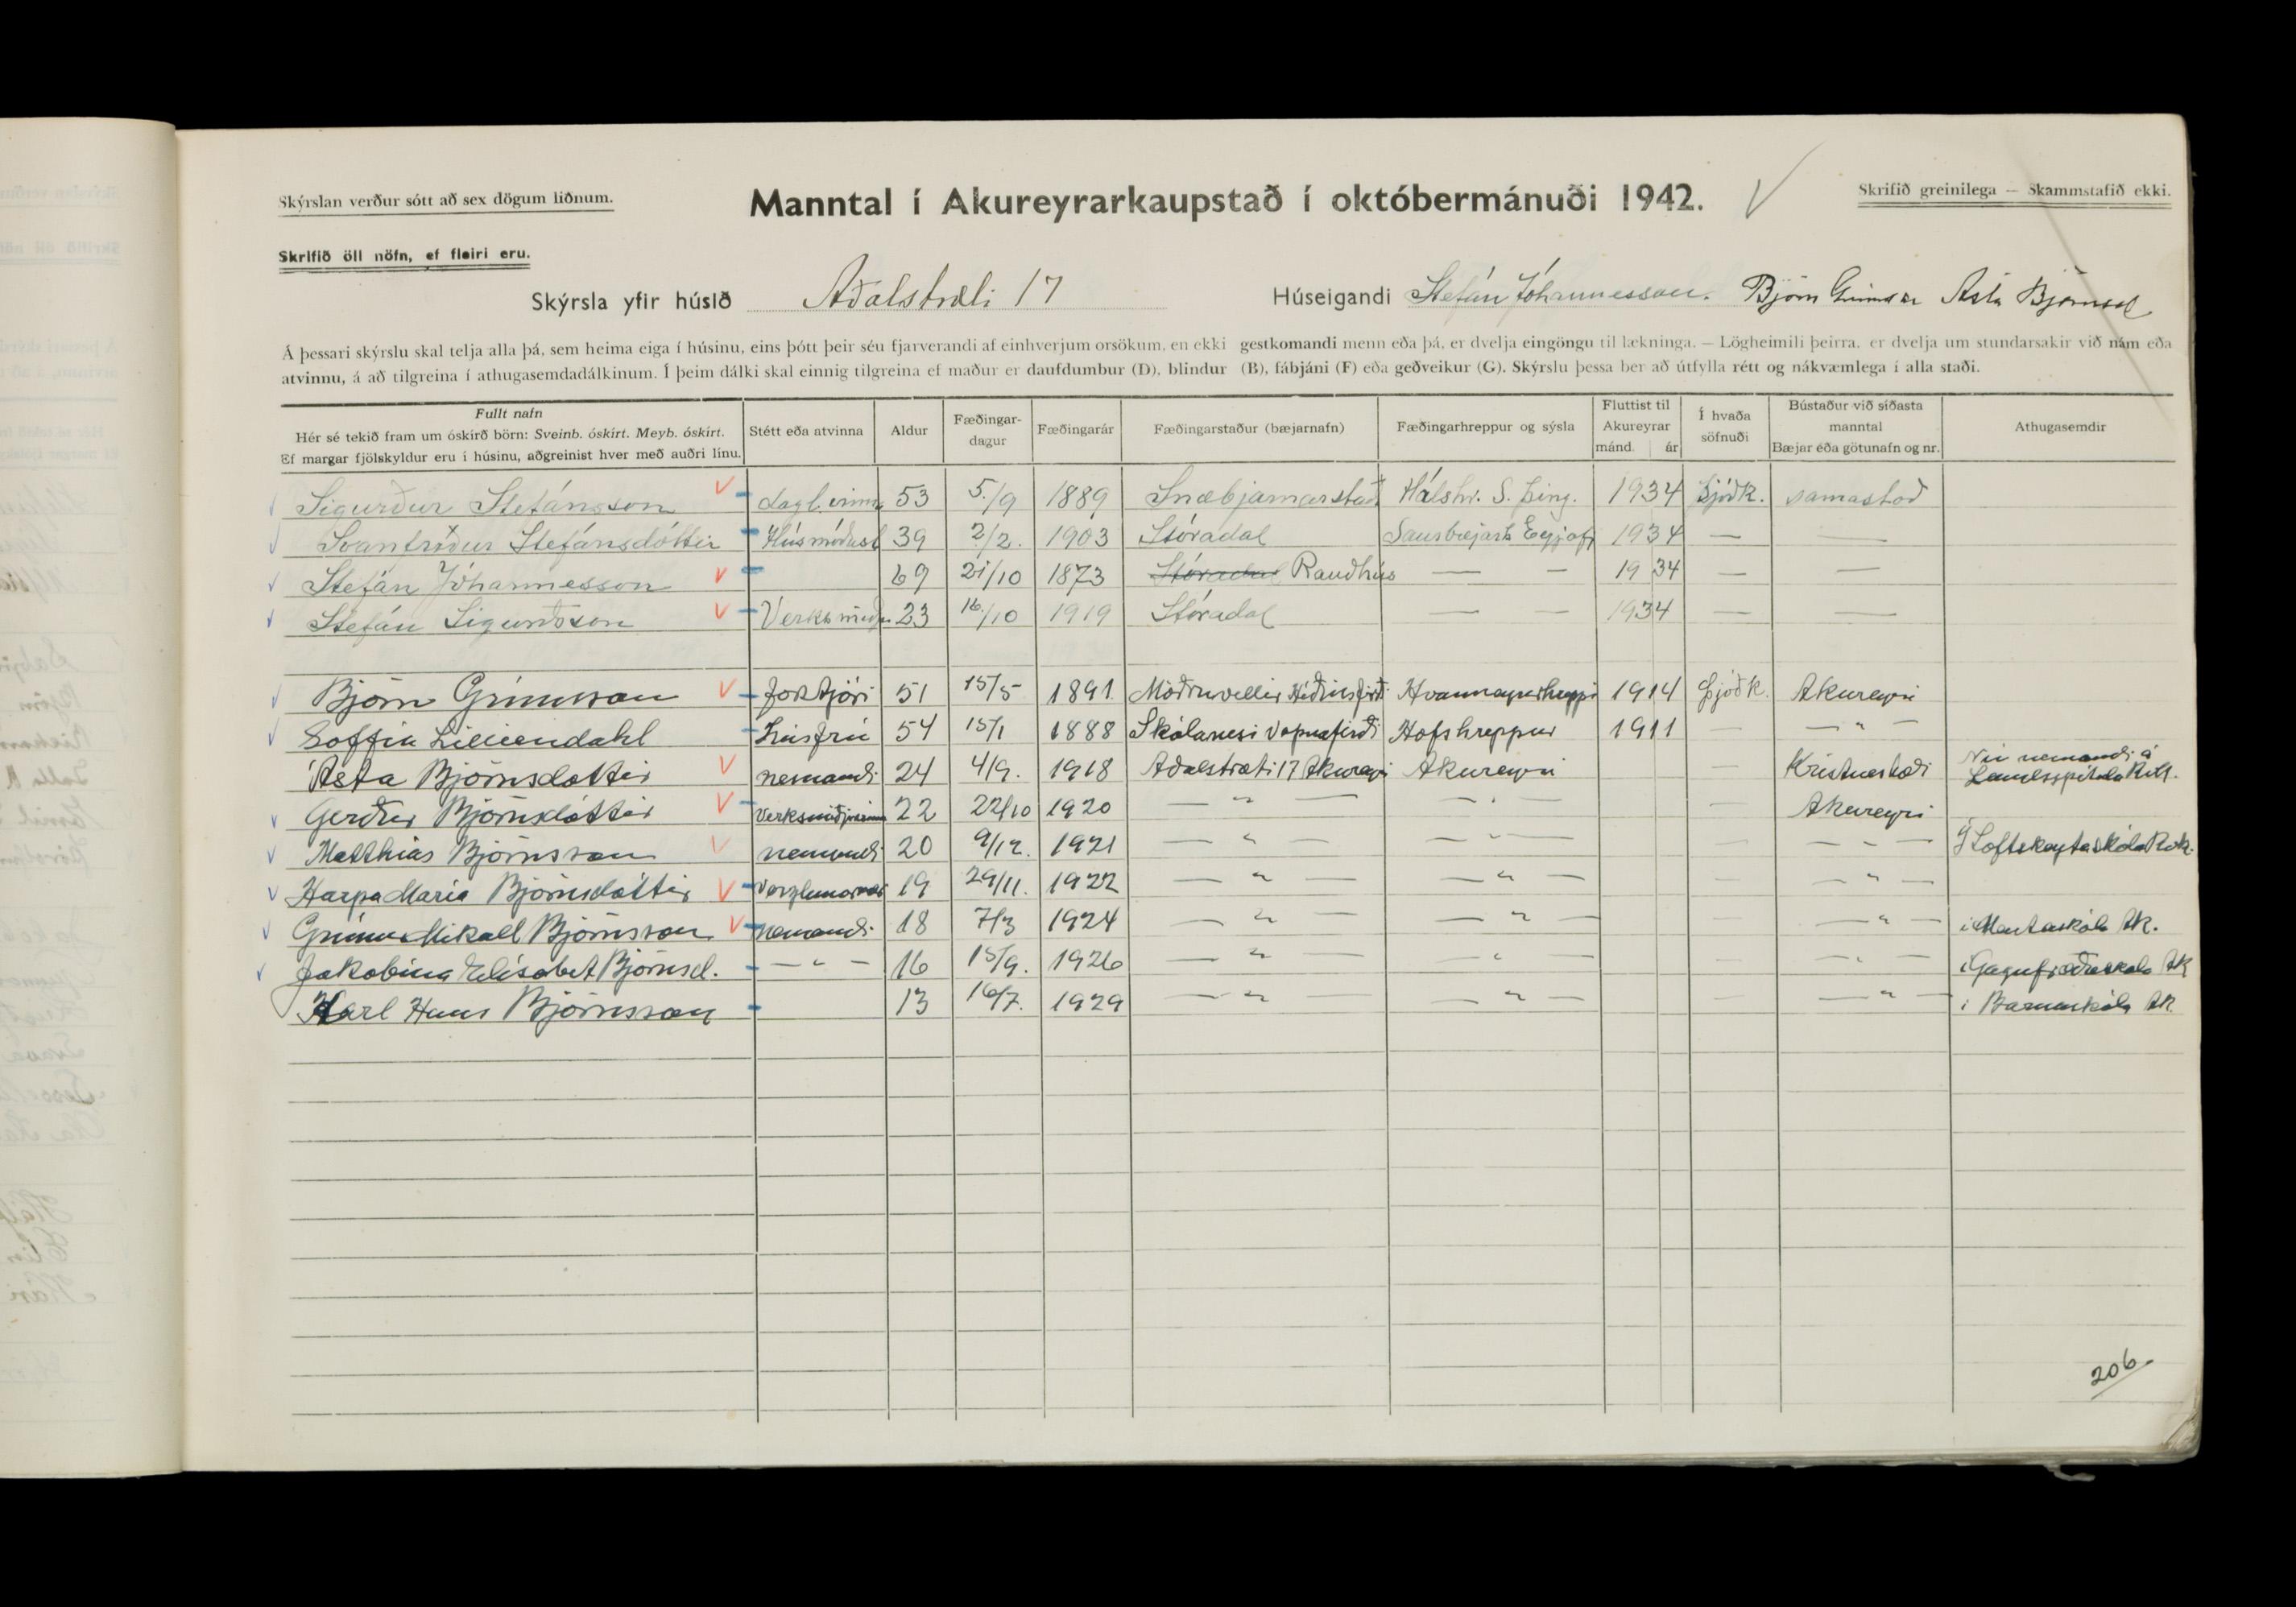 Skýrslan verður sótt að sex dögum liðnum.
Manntal í Akureyrarkaupstað í októbermánuði 1942. V
Skrifið greinilega — Skammstafið ekki.
Skrifið öll nöfn, ef fleiri eru.
Skýrsla yfir húsið Aðalstræti 17
Húseigandi Stefán Jóhannesson. Björn Grímsson Ásta Björnsd.
Á þessari skýrslu skal telja alla þá, sem heima eiga í húsinu, eins þótt þeir séu fjarverandi af einhverjum orsökum, en ekki gestkomandi menn eða þá, er dvelja eingöngu til lækninga. — Lögheimili þeirra, er dvelja um stundarsakir við nám eða
atvinnu, á að tilgreina í athugasemdadálkinum. Í þeim dálki skal einnig tilgreina ef maður er daufdumbur (D), blindur (B), fábjáni (F) eða geðveikur (G). Skýrslu þessa ber að útfylla rétt og nákvæmlega í alla staði.
Fullt nafn
Hér sé tekið fram um óskírð börn: Sveinb. óskírt. Meyb. óskírt.
Ef margar fjölskyldur eru í húsinu, aðgreinist hver með auðri línu.
Stétt eða atvinna
Aldur
Fæðingar-
dagur
Fæðingarár
Fæðingarstaður (bæjarnafn)
Fæðingarhreppur og sýsla
Fluttist til
Akureyrar
mánd. ár
Í hvaða
söfnuði
Bústaður við síðasta
manntal
Bæjar eða götunafn og nr.
Athugasemdir
Sigurður Stefánsson dagl. vinna 53 5./9 1889 Snæbjarnarstað Hálshr. S. Þing. 1934 Þjóðk. samastað
Svanfríður Stefánsdóttir Húsmóðurst 39 2/2. 1903 Stóradal Saurbæjarh Eyjafj 1934 — —
Stefán Jóhannesson 69 21/10 1873 Stóradal Rauðhús — — 1934 — —
Stefán Sigurðsson Verksmiðju 23 16./10 1919 Stóradal — — 1934 — —
Björn Grímsson forstjóri 51 15/5 1891 Möðruvellir Héðinsfirði Hvanneyrarhreppi 1914 Þjóðk. Akureyri
Soffía Lilliendahl húsfrú 54 15/1 1888 Skálanesi Vopnafirði Hofshreppur 1911 — — " —
Ásta Björnsdóttir nemandi 24 4/9. 1918 Aðalstræti 17 Akureyri Akureyri — Kristneshæli Nú nemandi á
Landsspítala Rvk.
Gerður Björnsdóttir Verksmiðjuvinna 22 22/10 1920 — " — — " — — Akureyri
Matthías Björnsson nemandi 20 9/12. 1921 — " — — " — — — " — Í Loftskeytaskóla Rvk.
Harpa María Björnsdóttir 19 29/11. 1922 — " — — " — — — " —
Grímur Mikael Björnsson nemandi 18 7/3 1924 — " — — " — — — " — í Menntaskóla Ak.
Jakobína Elísabet Björnsd. — " — 16 15/9. 1926 — " — — " — — — " — í Gagnfræðaskóla Ak
Karl Hans Björnsson 13 16/7. 1929 — " — — " — — — " — í Barnaskóla Ak.
206.